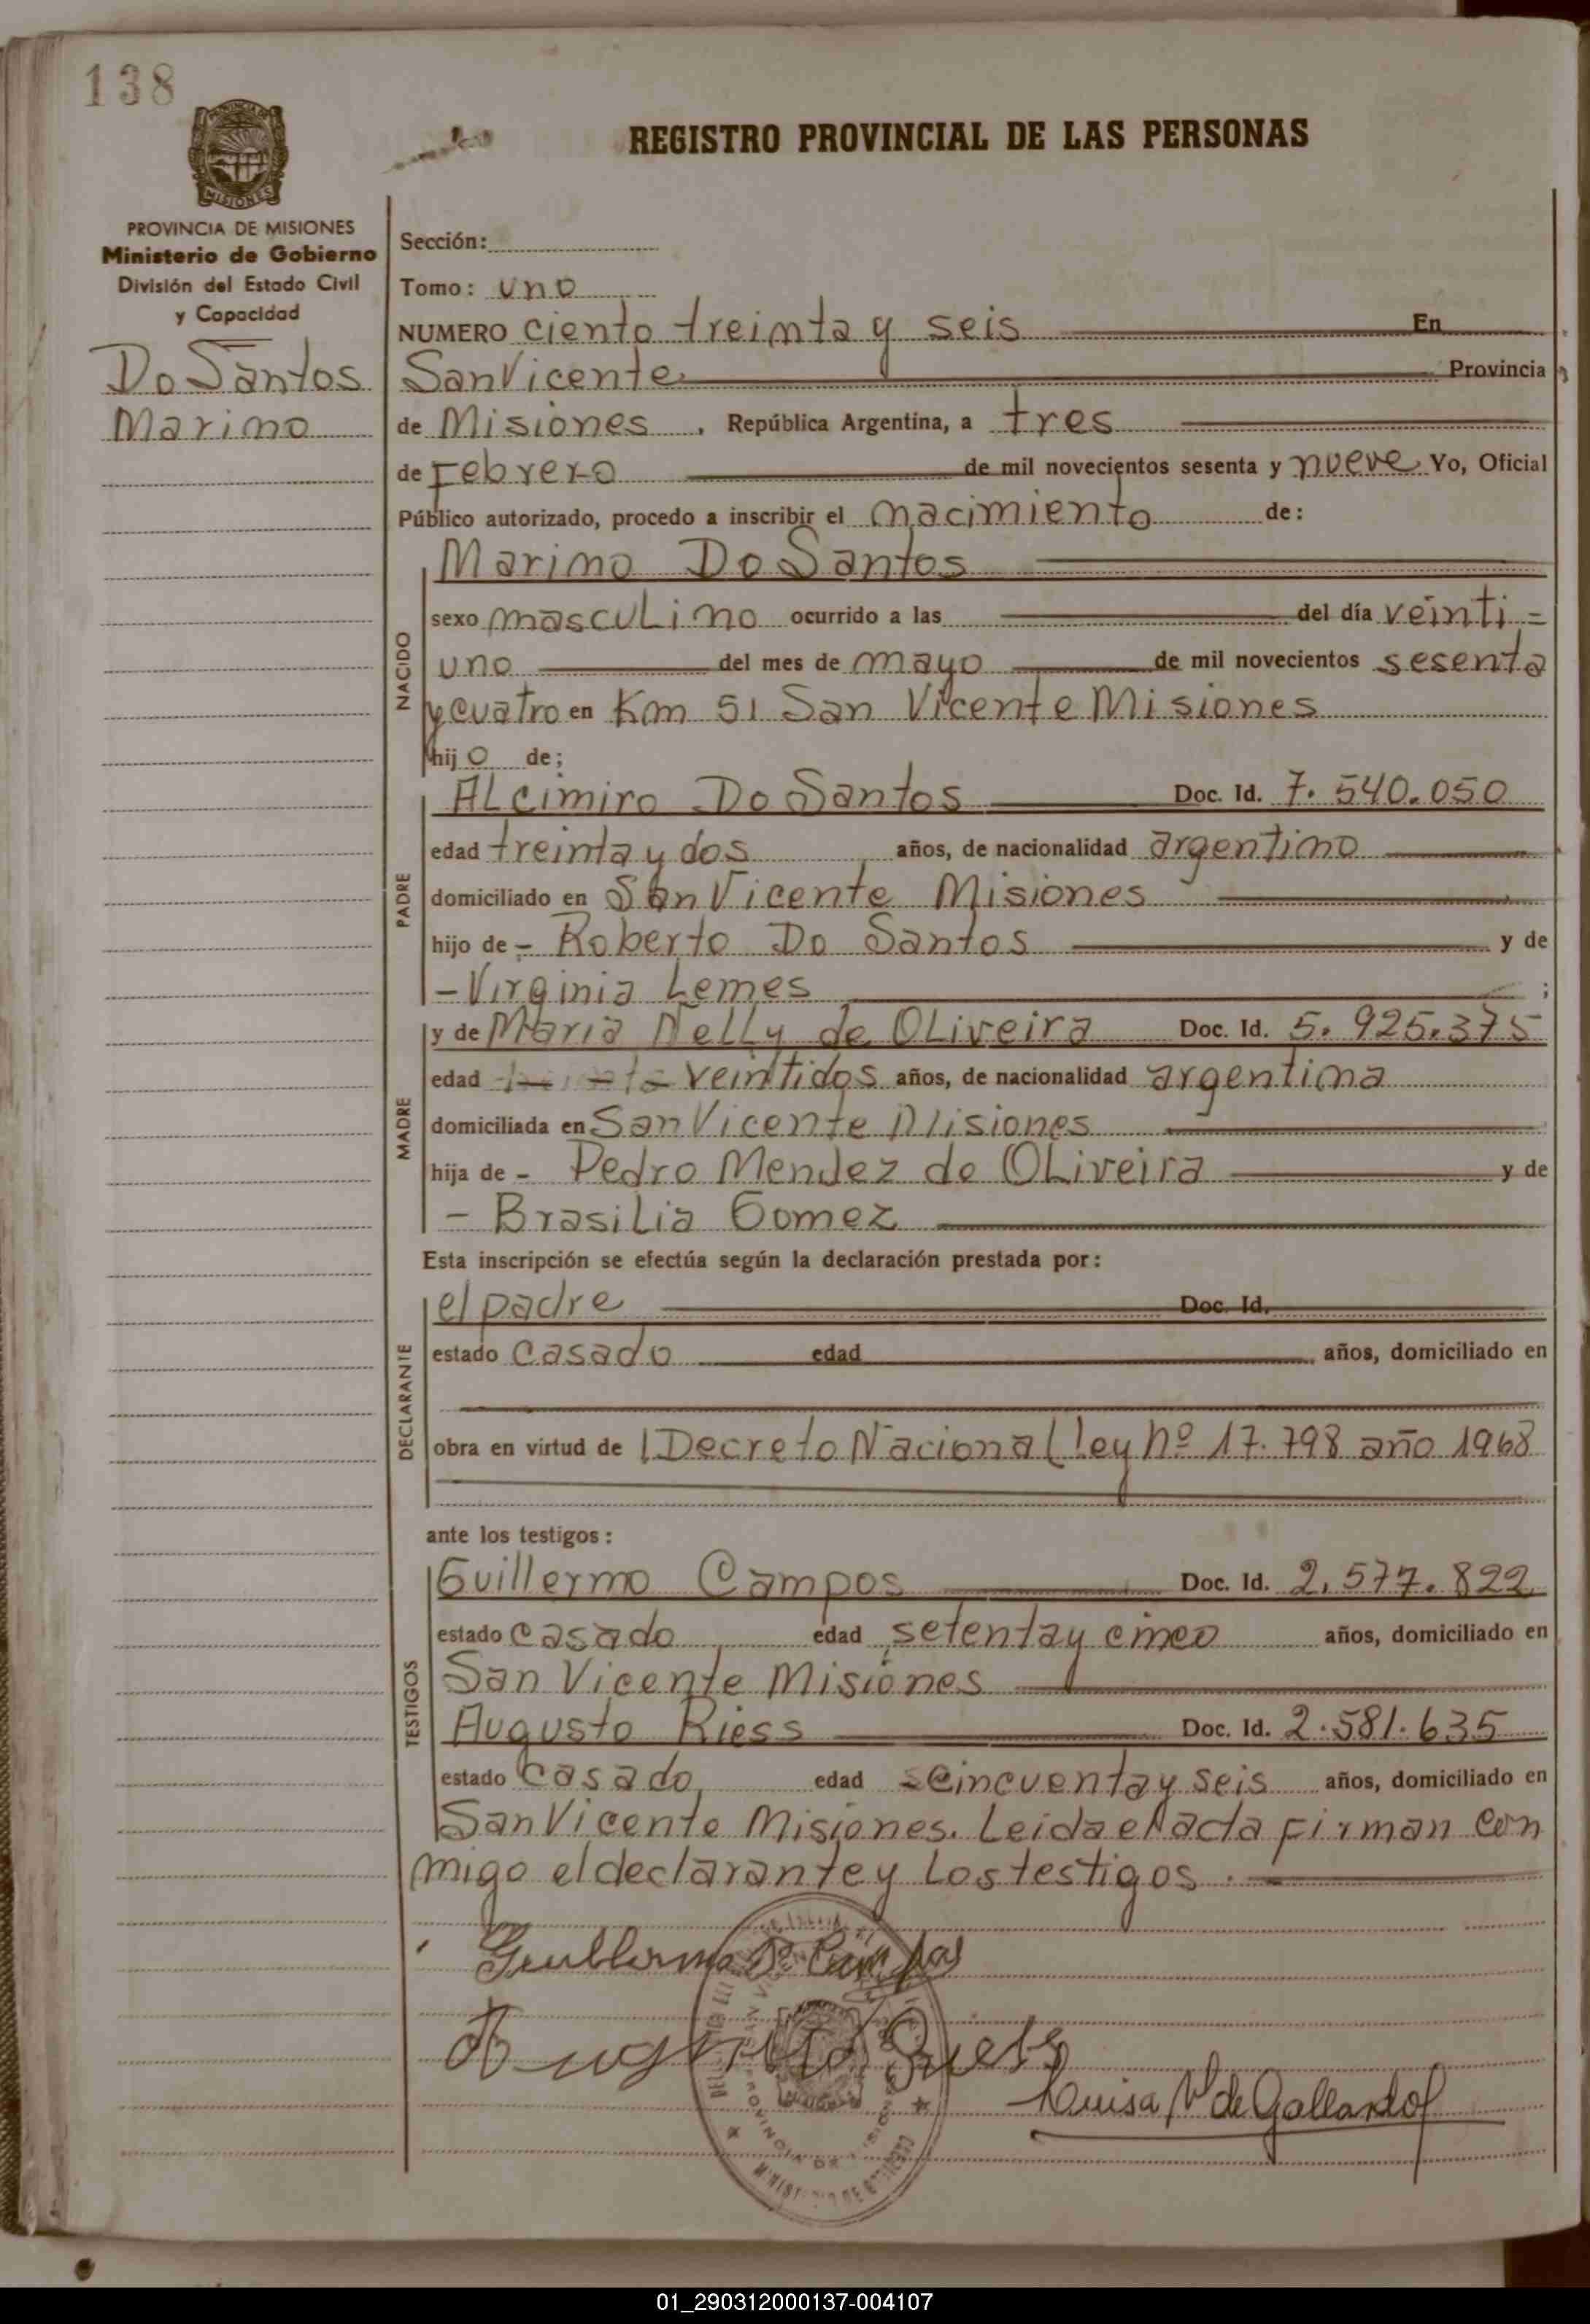 138
REGISTRO PROVINCIAL DE LAS PERSONAS
PROVINCIA DE
MISIONES
PROVINCIA DE MISIONES
Ministerio de Gobierno
División del Estado Civil
y Capacidad
Do Santos
Marino
Sección:
Tomo: uno
NUMERO ciento treinta y seis En
San Vicente Provincia
de Misiones, República Argentina, a tres
de Febrero de mil novecientos sesenta y nueve Yo, Oficial
Público autorizado, procedo a inscribir el nacimiento de:
NACIDO
Marino Do Santos
sexo masculino ocurrido a las del día veinti=
uno del mes de mayo de mil novecientos sesenta
y cuatro en Km 51 San Vicente Misiones
hijo de;
PADRE
Alcimiro Do Santos Doc. Id. 7.540.050
edad treinta y dos años, de nacionalidad argentino
domiciliado en San Vicente Misiones
hijo de - Roberto Do Santos y de
- Virginia Lemes ;
MADRE
y de Maria Nelly de Oliveira Doc. Id. 5.925.375
edad veintidos años, de nacionalidad argentina
domiciliada en San Vicente Misiones
hija de - Pedro Mendez de Oliveira y de
- Brasilia Gomez
Esta inscripción se efectúa según la declaración prestada por:
DECLARANTE
el padre Doc. Id.
estado casado edad años, domiciliado en
obra en virtud de l Decreto Nacional ley Nº 17.798 año 1968
ante los testigos:
TESTIGOS
Guillermo Campos Doc. Id. 2.577.822
estado casado edad setenta y cinco años, domiciliado en
San Vicente Misiones
Augusto Riess Doc. Id. 2.581.635
estado casado edad cincuenta y seis años, domiciliado en
San Vicente Misiones. Leida el acta firman con
migo el declarante y los testigos.
Guillermo Campos
Augusto Riess
Luisa V de Gallardo
PROVINCIA DE
MINISTERIO DE GOBIERNO
01_290312000137-004107